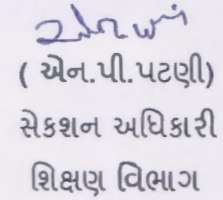 ( એન.પી.પટણી)
સેકશન અધિકારી
શિક્ષણ વિભાગ